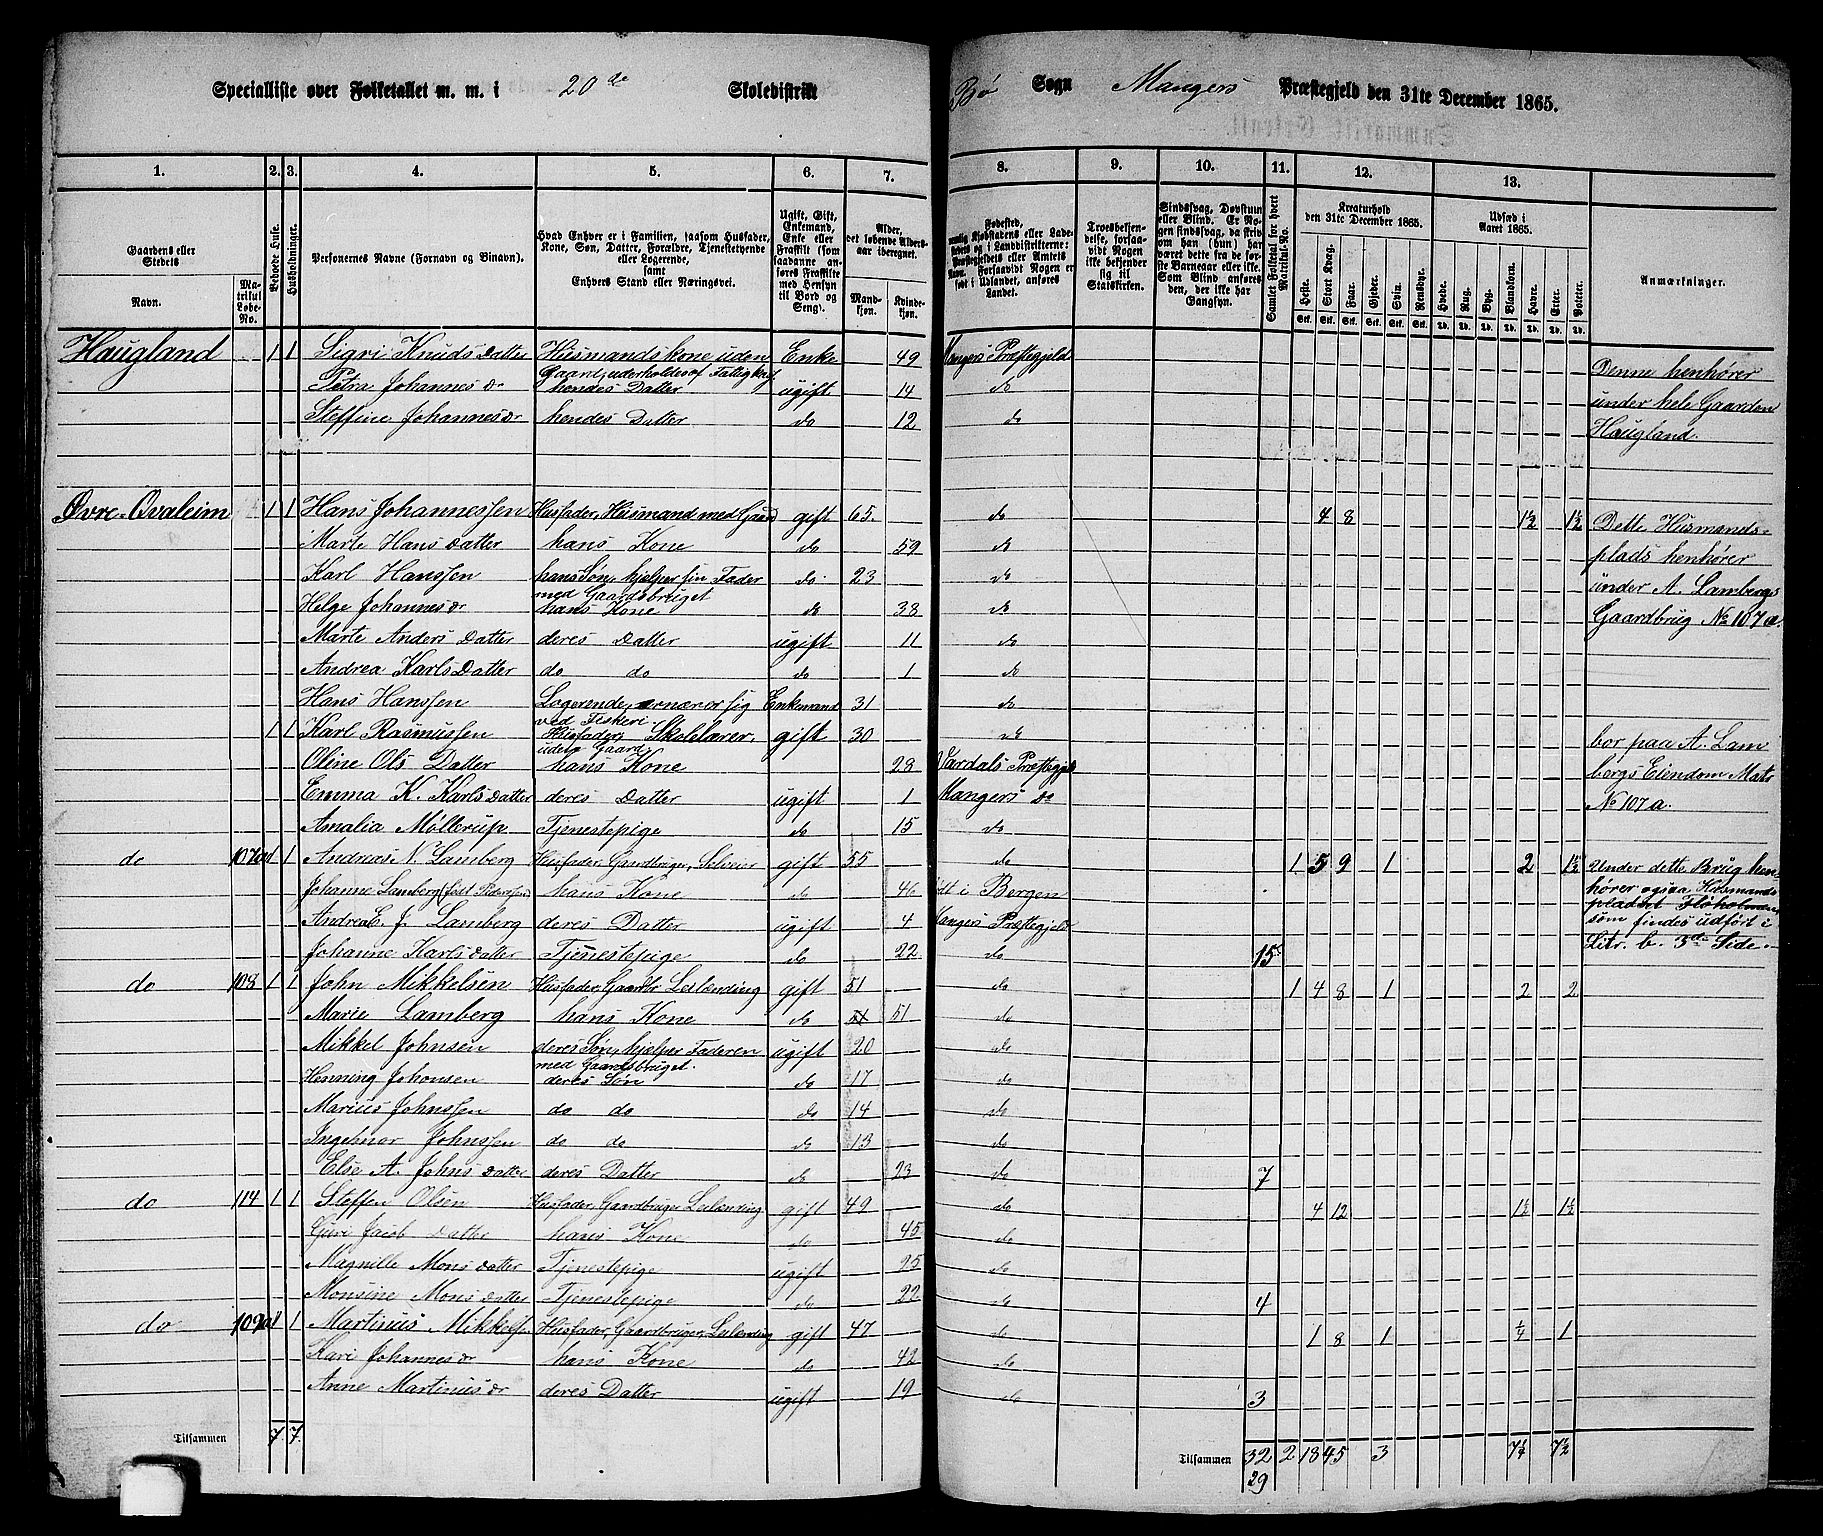 Specialliste over Folketallet m. m. i 20de Skoledistrikt Bø Sogn Mangers Præstegjeld den 31te December 1865.
1. 2. 3. 4. 5. 6. 7. 8. 9. 10. 11. 12. 13.
Gaardens eller Stedets
Navn. Matrikul Løbe-No.
Beboede Huse. Husholdninger.
Personernes Navne (Fornavn og Binavn).
Hvad Enhver er i Familien, saasom Husfader, Kone, Søn, Datter, Forældre, Tjenestetyende eller Logerende, samt Enhvers Stand eller Næringsvei.
Ugift, Gift, Enkemand, Enke eller Fraskilt (som saadanne anføres Fraskilte med Hensyn til Bord og Seng).
Alder, det løbende Aldersaar iberegnet.
Mandkjøn. Kvindekjøn.
Trosbekjendelse, forsaavidt Nogen ikke bekjender sig til Statskirken.
Samlet Folketal for hvert Matrikul-No.
Kreaturhold den 31te December 1865.
Heste. Stort Kvæg. Faar. Gjeder. Svin. Rensdyr.
Udsæd i Aaret 1865.
Hvede. Rug. Byg. Blandkorn. Havre. Erter. Poteter.
Anmærkninger.
Haugland 1 1 Sigri Knuds Datter Husmandskone uden Enke 49 Mangers Præstegjeld
Gaard, underholdes af Fattigk. Denne henhører
Petra Johannes Dr hendes Datter ugift 14 do
under hele Gaarden
Steffine Johannesdr hendes Datter do 12 do
Haugland.
Øvre-Qvaleim 1 1 Hans Johannessen Husfader, Husmand med Gaard gift 65. do 4 8 1½ 1½ Dette Husmands-
Marte Hans Datter hans Kone do 59 do plads henhører
Karl Hanssen hans Søn, hjelper sin Fader do 23 do under A. Lambergs
med Gaardsbruget
Helge Johannesdr hans Kone do 38 do Gaardbrug No 107a.
Marte Anders Datter deres Datter ugift 11 do
Andrea Karls Datter do do do 1 do
Hans Hanssen Logerende, ernærer sig Enkemand 31 do
ved Fiskeri.
1 1 Karl Rasmussen Husfader, Skolelærer, gift 30 do bor paa A. Lam
uden Gaard
Oline Ols Datter hans Kone 28 Vardals Præstegjeld bergs Eiendom Matr
Emma K. Karls Datter deres Datter ugift 1 Mangers do No 107a.
Amalia Møllerup Tjenestepige do 15 do
do 107a 1 1 Andreas N. Lamberg Husfader, Gaardbruger, Selveier gift 55 do 1 5 9 1 2 1½ Under dette Brug hen
Johanne Lamberg (født Pedersen) hans Kone do 46 født i Bergen hører ogsaa Husmands
Andrea E. J. Lamberg deres Datter ugift 4 Mangers Præstegjeld pladset Fløholmen
som findes udført i
Johanne Karls Datter Tjenestepige do 22 do 15 Litr. b. 3die Side.
do 108 1 1 John Mikkelsen Husfader, Gaardbr Leilænding gift 51 do 1 4 8 1 2 2
Marie Lamberg hans Kone do 51 51 do
Mikkel Johnsen deres Søn, hjelper Faderen ugift 20 do
med Gaardsbruget.
Henning Johnsen deres Søn do 17 do
Marius Johnssen do do do 14 do
Ingelmar Johnssen do do do 13 do
Else A. Johns Datter deres Datter do 23 do 7
do 114 1 1 Steffen Olsen Husfader, Gaardbruger Leilænding gift 49 do 4 12 1½ 1½
Guri Jacob Datter hans Kone do 45 do
Magnille Mons Datter Tjenestepige ugift 25 do
Monsine Mons Datter Tjenestepige do 22 do 4
do 109a 1 1 Martinus Mikkels. Husfader, Gaardbruger, Leilænding gift 47 do 1 8 1 ¼ 1
Kari Johannesdr hans Kone do 42 do
Anne Martinusdr deres Datter ugift 19 do 3
Tilsammen 7. 7. Tilsammen 32 2 18 45 3 7¼ 7½
29